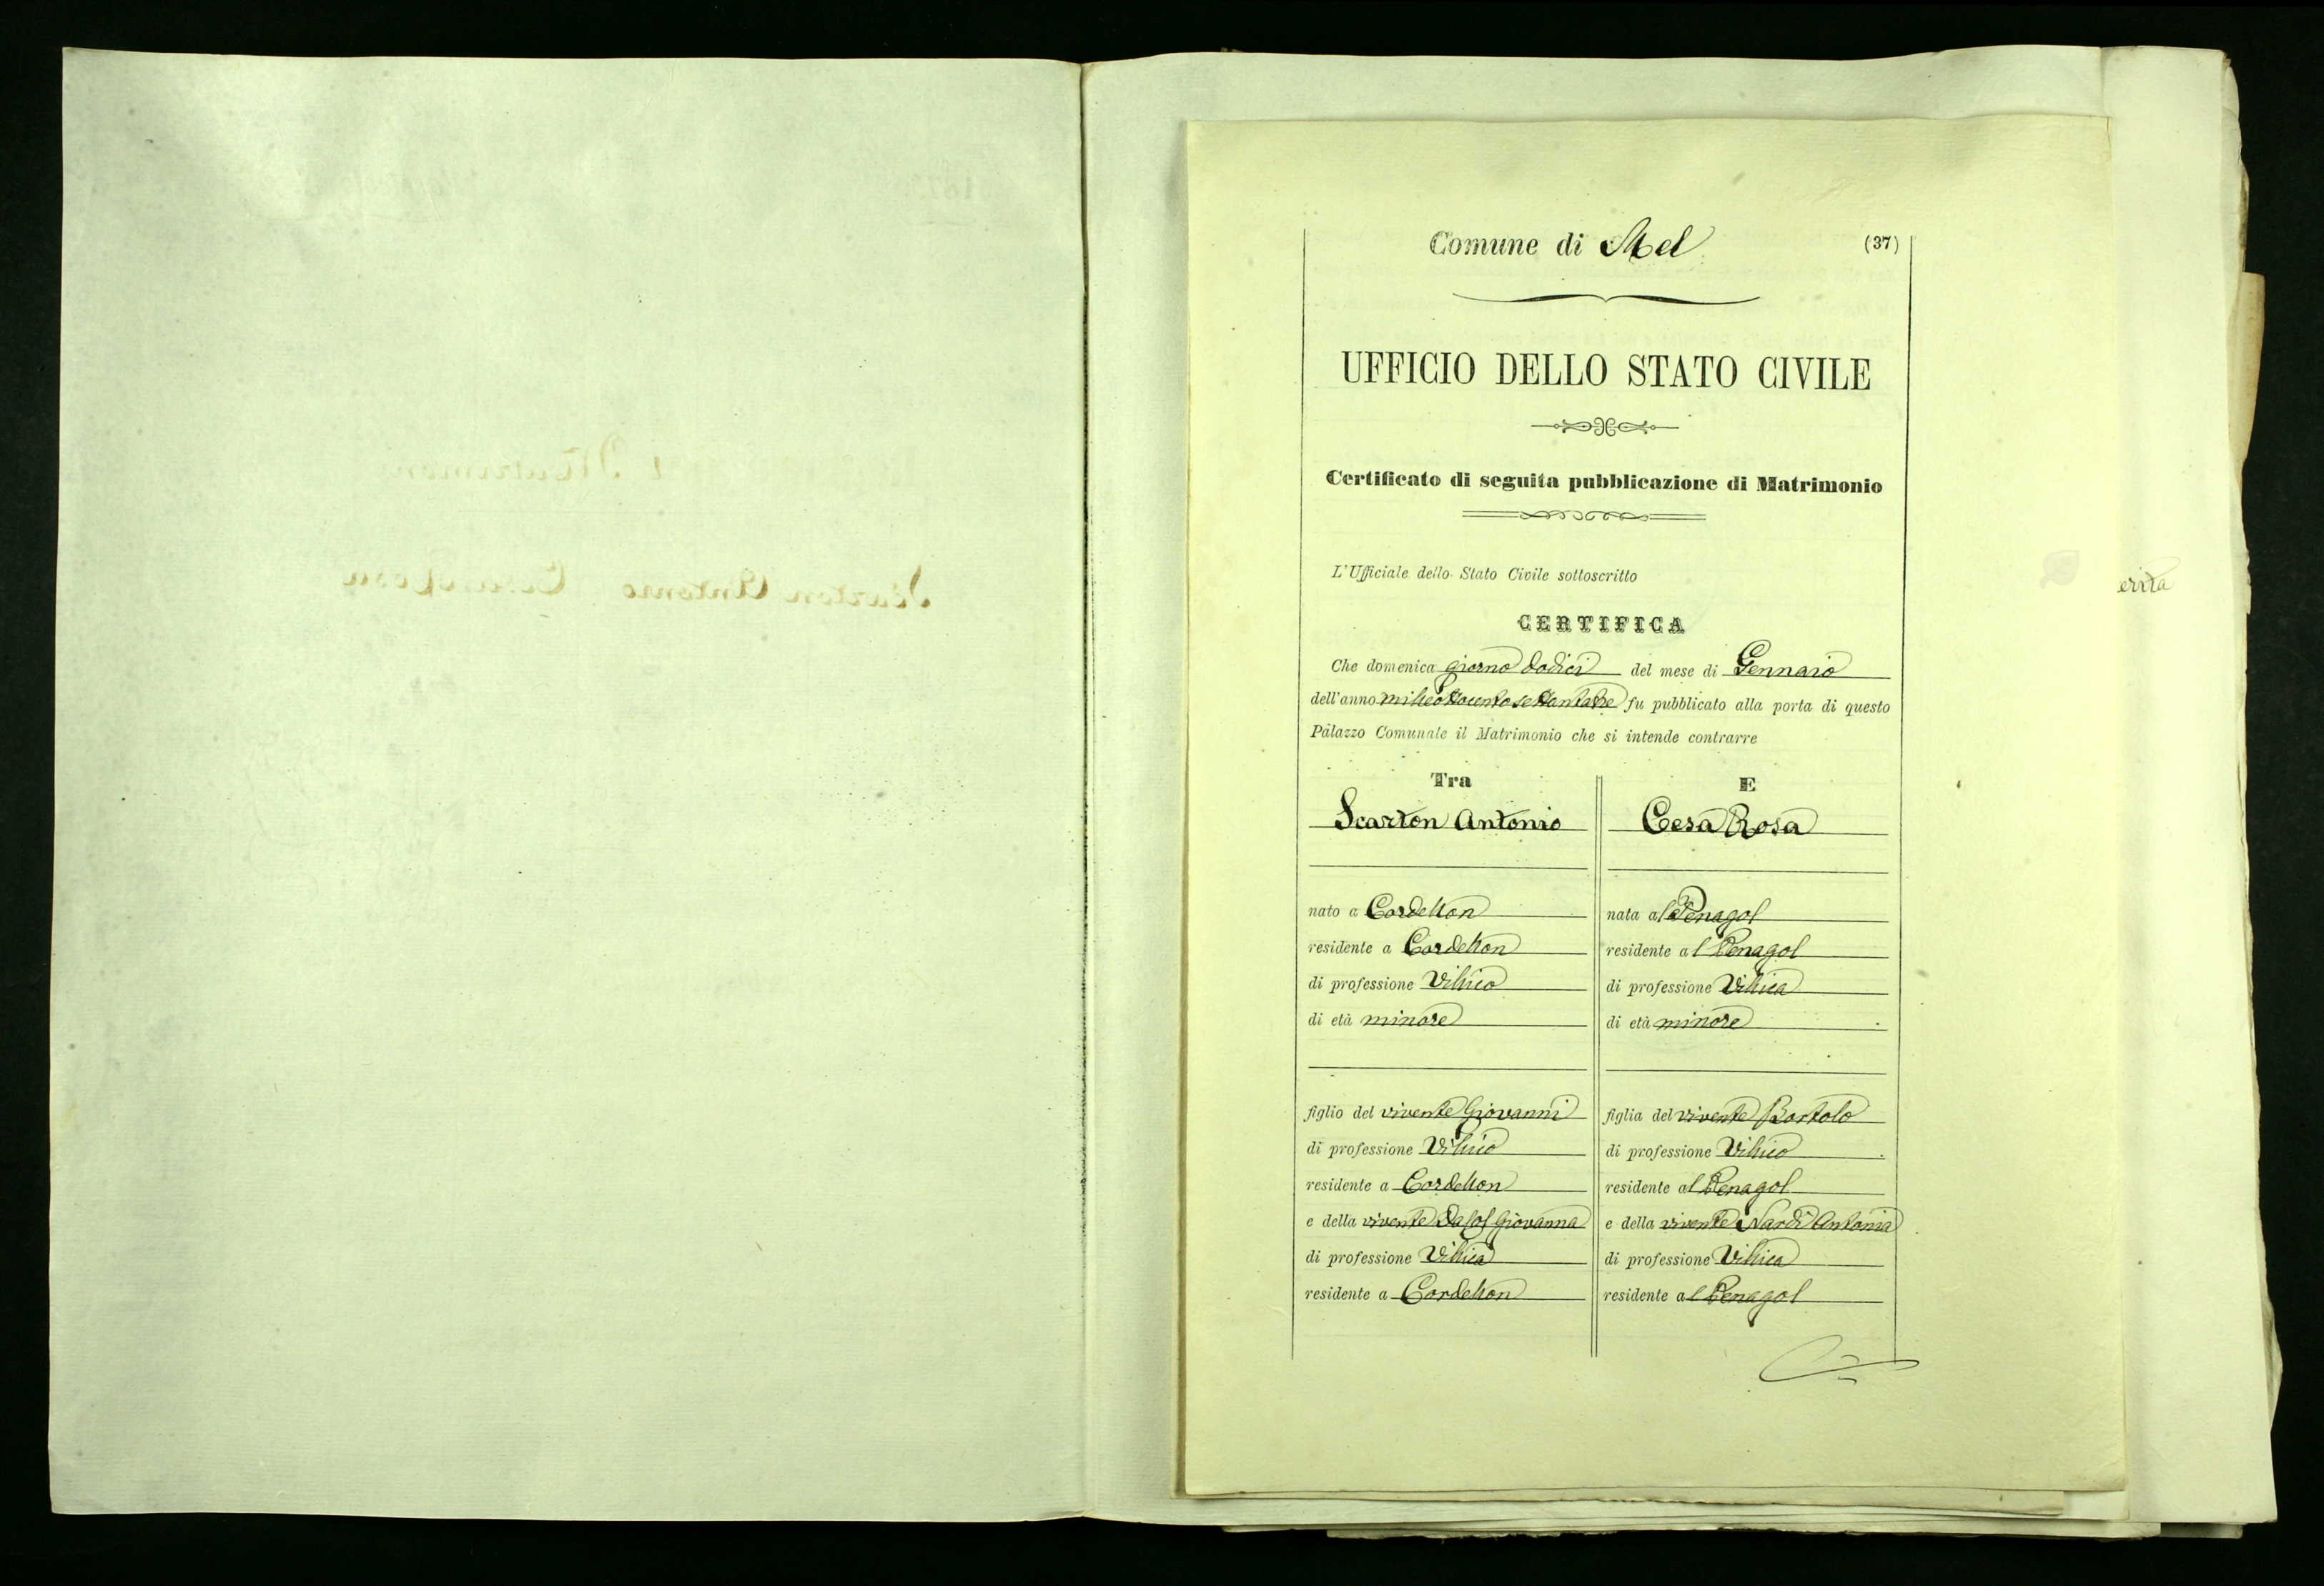 Comune di Mel
(37)
UFFICIO DELLO STATO CIVILE
Certificato di seguita pubblicazione di Matrimonio
L'Ufficiale dello Stato Civile sottoscritto
CERTIFICA
Che domenica giorno dodici del mese di Gennaio
dell'anno milleottocentosettantatre fu pubblicato alla porta di questo
Palazzo Comunale il Matrimonio che si intende contrarre
Tra
Scarton Antonio
nato a Cordellon
residente a Cordellon
di professione Villico
di età minore
figlio del vivente Giovanni
di professione Villico
residente a Cordellon
e della vivente Dalsol Giovanna
di professione Villica
residente a Cordellon
E
Cesa Rosa
nata al Penagol
residente al Penagol
di professione Villica
di età minore
figlia del vivente Bortolo
di professione Villico
residente al Penagol
e della vivente Nardi Antonia
di professione Villica
residente al Penagol